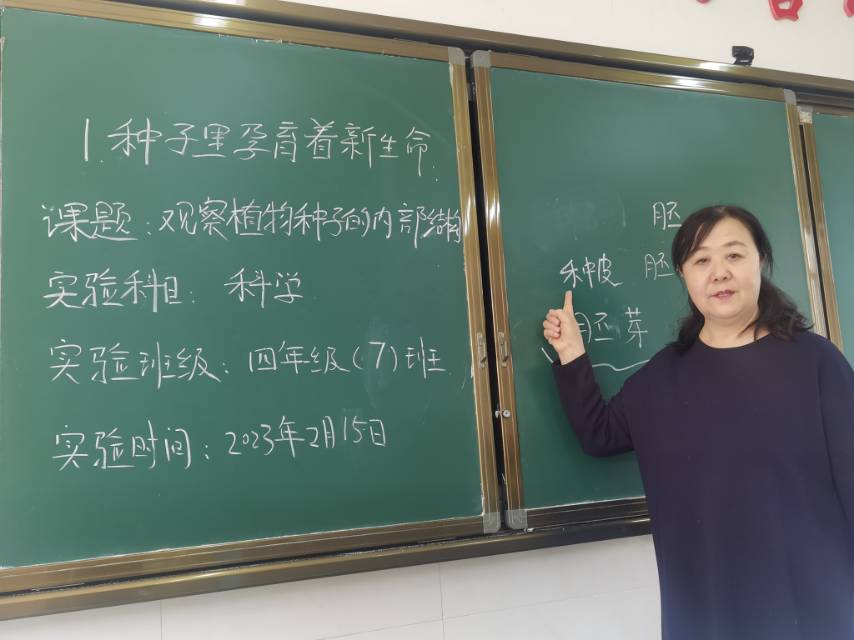 1.种子里孕育着新生命.
课题:观察植物种子的内部结构
实验科目:科学
实验班级:四年级(7)班
实验时间:2023年2月15日
胚
种皮 胚
胚芽